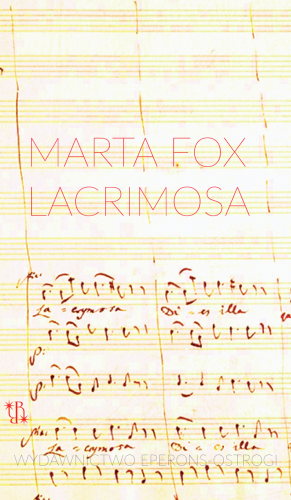 MARTA FOX
LACRIMOSA
La = crymosa Di = es illa
La = crymosa Di = es illa
WYDAWNICTWO EPERONS-OSTROGI